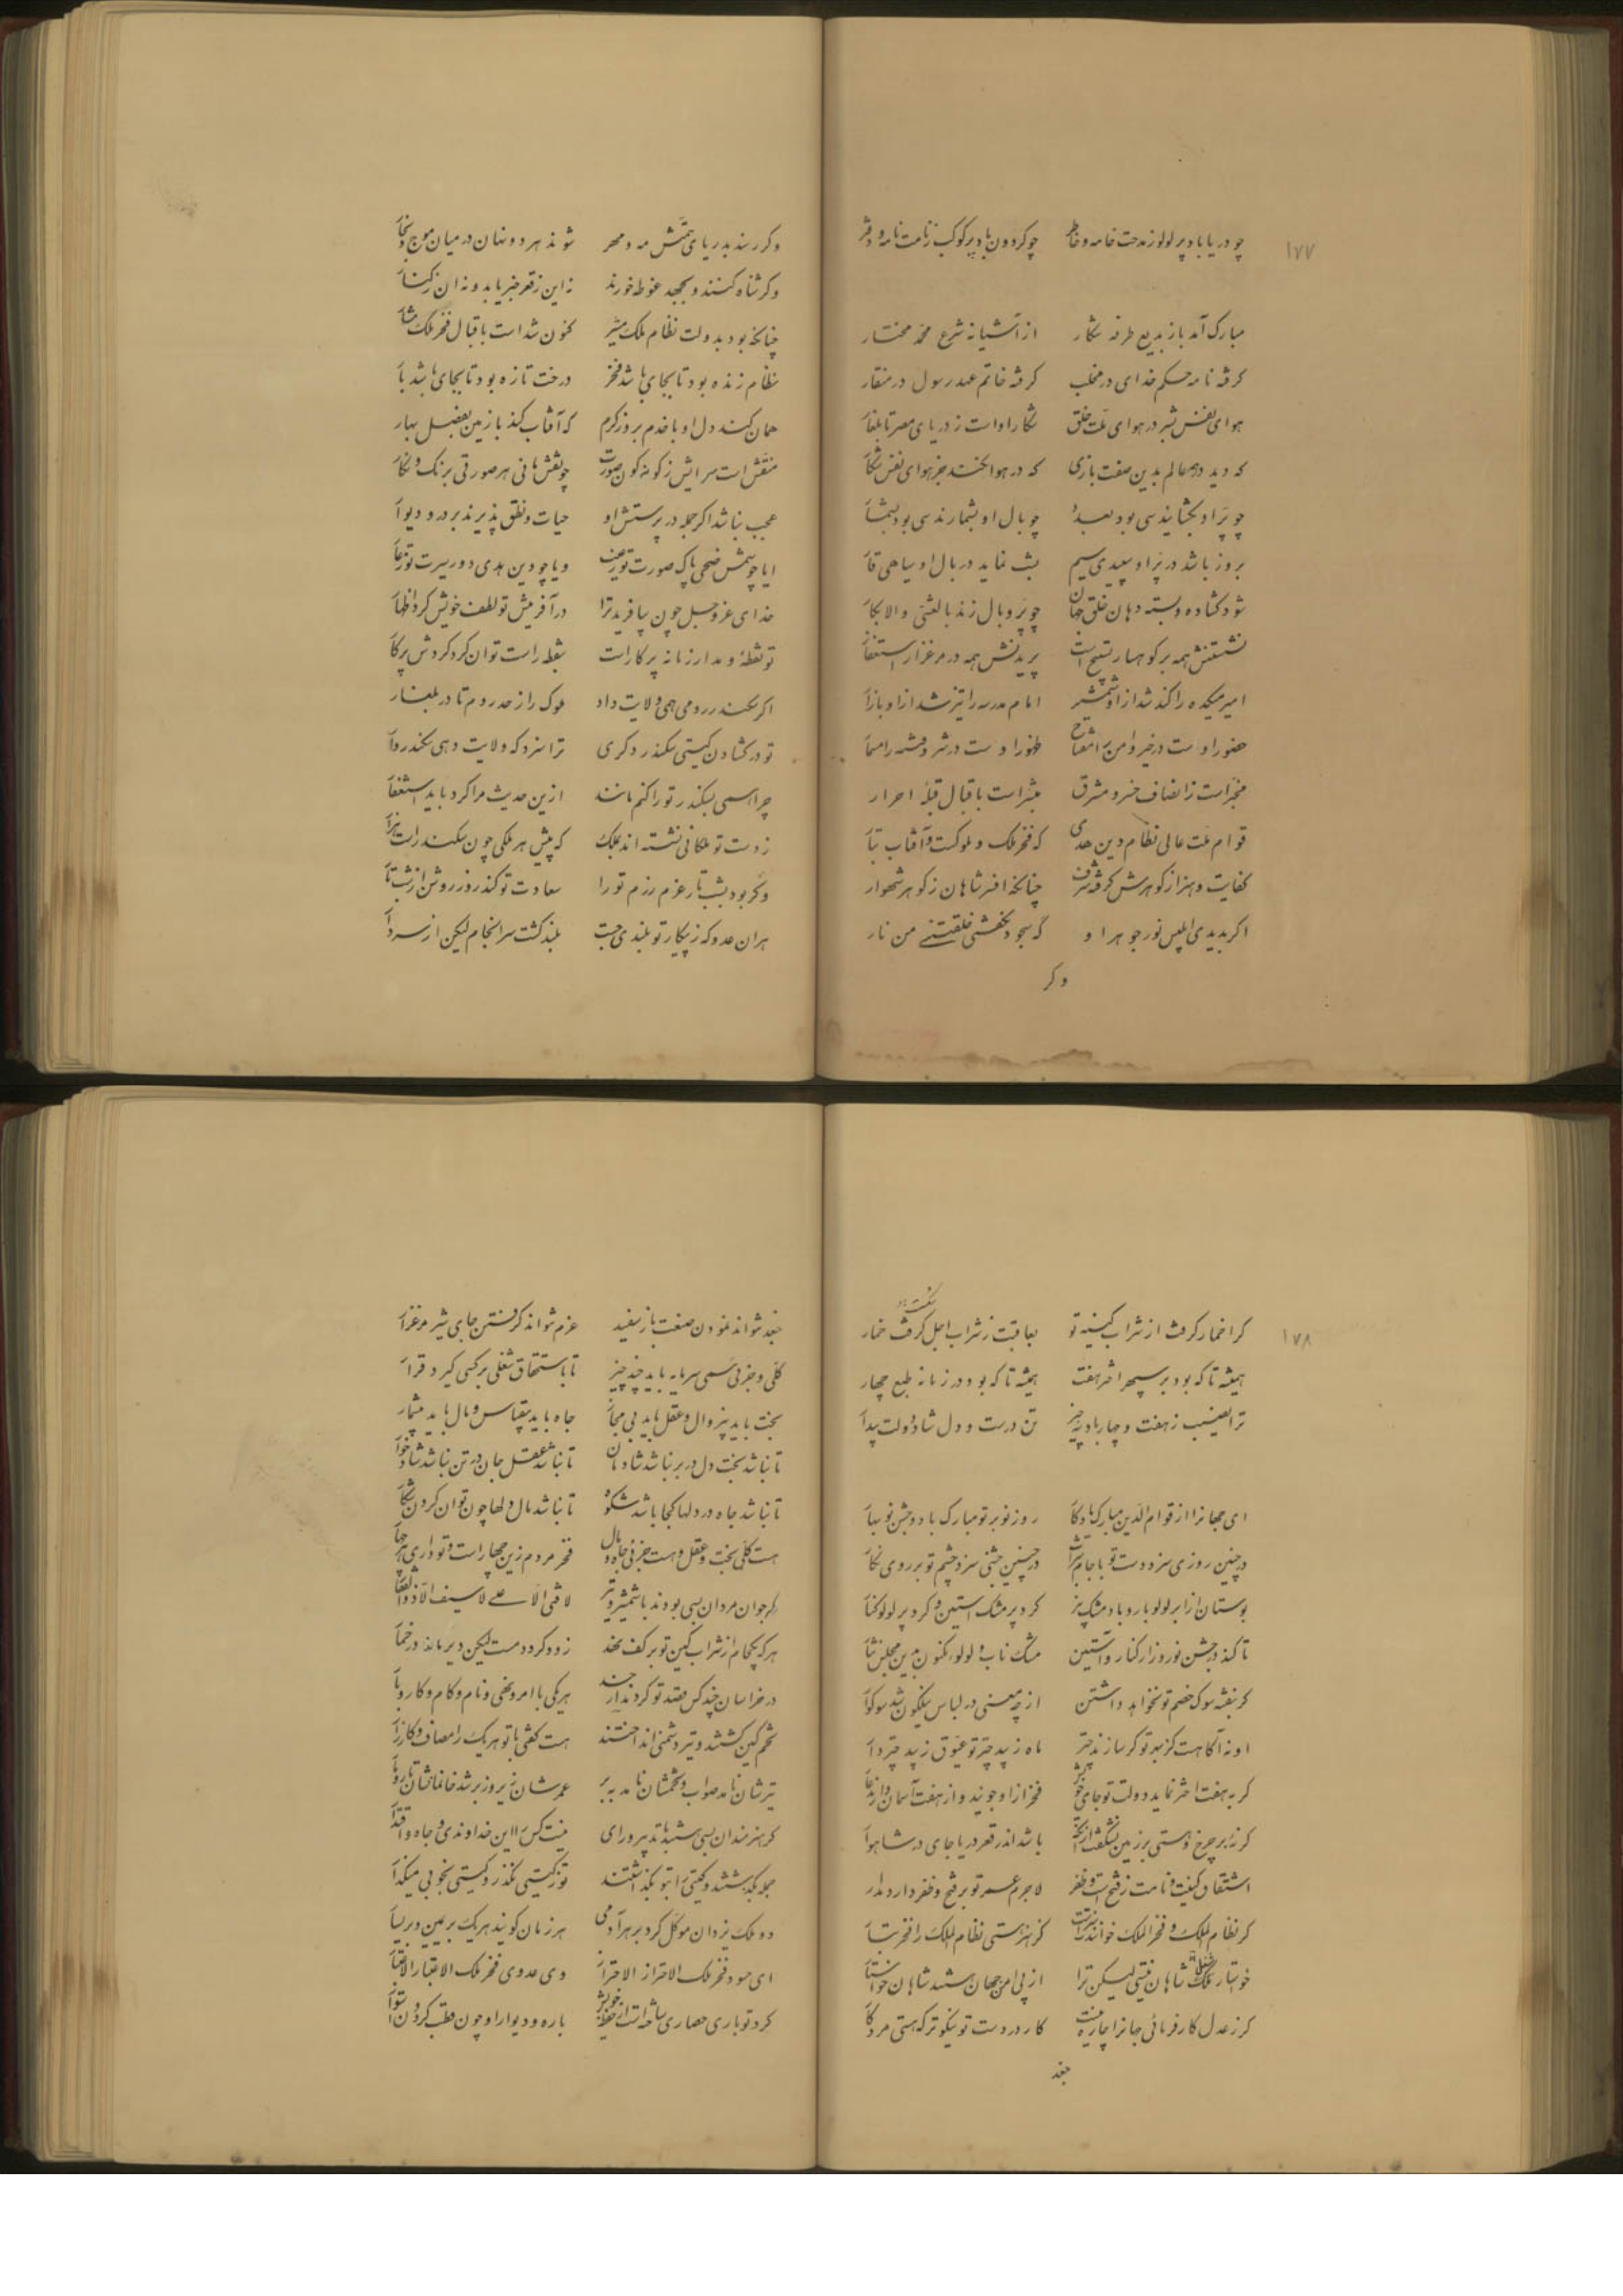 ۱۷۷
چو دریا باد پر لولو ز مدحت خامه و خاطر چو کردون باد پر کوکب ز نامت نامه و دفتر
مبارک آمد باز بدیع طرفه شکار از آشیانه شرع محمد مختار
کرفته نامه حکم خدای در مخلب کرفته خاتم عهد رسول در منقار
هوای نفس بشر در هوای ملت خلق شکار او است ز دریای مصر تا بلغار
که دید در همه عالم بدین صفت بازی که در هوا نکند جز هوای نفس شکار
چو پر او بکشایند سی بود بعدد چو بال او بشمارند سی بود بشمار
بروز باشد در پر او سپیدی سیم بشب نماید در بال او سیاهی قار
شود کشاده و بسته دهان خلق جهان چو پر و بال زند بالعشی و الابکار
نشستنش همه بر کوهسار تسبیح است پریدنش همه در مرغزار استغفار
امیر میکده را کند شد از او شمشیر امام مدرسه را تیز شد از او بازار
حضور او ست در خیر و امن را مفتاح ظهور او ست در شر و فتنه را مسمار
مخبر است ز انصاف خسرو مشرق مبشر است باقبال قبله احرار
قوام ملت عالی نظام دین هدی که فخر ملک و ملوکست و آفتاب تبار
کفایت و هنر از کوهرش کرفته شرف چنانکه افسر شاهان ز کوهر شهوار
اکر بدیدی ابلیس نور جوهر او که سجود نکفتی خلقتنی من نار
وکر
وکر رسند بدریای همتش مه و مهر شوند هر دو نهان در میان موج و بخار
وکر شناه کنند و بجهد غوطه خورند نه این ز قعر خبر یابد و نه آن ز کنار
چنانکه بود بدولت نظام ملک مشیر کنون شداست باقبال فخر ملک مشار
نظام زنده بود تا بجای باشد فخر درخت تازه بود تا بجای باشد بار
همان کند دل او با خدم بروز کرم که آفتاب کند با زمین بفصل بهار
منقش است سرایش ز کونه کون صورت چو نقش مانی هر صورتی برنک و نکار
عجب نباشد اکر جمله در پرستش او حیات و نطق پذیرند بر در و دیوار
ایا چو شمس ضحی پاک صورت تو ز عیب و یا چو دین هدی دور سیرت تو ز عار
خدای عز و جل چون بیافرید ترا در آفرینش تو لطف خویش کرد اظهار
تو نقطهٔ و مدار زمانه پرکار است بنقطه راست توان کرد کردش پرکار
اکر سکندر رومی همی ولایت داد ملوک را ز حد روم تا در بلغار
تو در کشادن کیتی سکندر دکری ترا سزد که ولایت دهی سکندروار
چرا همی بسکندر تو را کنم مانند ازین حدیث مرا کرد باید استغفار
ز دست تو ملکانی نشسته اند بملک که پیش هر ملکی چون سکندر است هزار
وکر بود بشب تار عزم رزم تو را سعادت تو کند روز روشن از شب تار
هر آن عدو که ز پیکار تو بلندی جست بلند کشت سرانجام لیکن از سر دار
۱۷۸
کرا خمار کرفت از شراب کینه تو بعاقبت ز شراب اجل کرفت خمار
شکست
همیشه تا که بود بر سپهر اختر هفت همیشه تا که بود در زمانه طبع چهار
ترا نصیب ز هفت و چهار باد سه چیز تن درست و دل شاد و دولت بیدار
ای جهانرا از قوام الدین مبارک یادکار روز نو بر تو مبارک باد و جشن نوبهار
در چنین روزی سزد دست تو با جام شراب در چنین جشنی سزد چشم تو بر روی نکار
بوستان از ابر لولو بار و باد مشک بیز کرد پر مشک آستین و کرد پر لولو کنار
تا کند در جشن نوروز از کنار و آستین مشک ناب و لولو مکنون بدین مجلس نثار
کر بنفشه سوک خصم تو نخواهد داشتن از چه معنی در لباس نیلکون شد سوکوار
او نه آکاهست کز بهر تو کر سازند چتر ماه زیبد چتر تو عیوق زیبد چتردار
کر به هفت اختر نماید دولت تو جای خویش فخر از او جویند و از هفت آسمان دارند عار
کر نهٔ بر چرخ و هستی بر زمین نشکفت از آنکه باشد اندر قعر دریا جای در شاهوار
اشتقاق کنیت و نامت ز فتح است و ظفر لاجرم عمر تو بر فتح و ظفر دارد مدار
کر نظام الملک و فخر الملک خوانندت سزاست کز هنر هستی نظام الملک را فخر تبار
خواستار ملک شاهان نیستی لیکن ترا از پی امن جهان هستند شاهان خواستار
کر ز عدل کارفرمائی جهانرا چاره نیست کار در دست تو نیکوتر که هستی مرد کار
جغد
جغد نتواند نمودن صنعت باز سفید غرم نتواند کرفتن جای شیر مرغزار
کلی و جزئی همی سرمایه باید چند چیز تا باستحقاق شغلی بر کسی کیرد قرار
بخت باید بیزوال و عقل باید بی مجاز جاه باید بیقیاس و مال باید بیشمار
تا نباشد بخت دل در بر نباشد شادمان تا نباشد عقل جان در تن نباشد شادخوار
تا نباشد جاه در دلها کجا باشد شکوه تا نباشد مال دلها چون توان کردن شکار
هست کلی بخت و عقل و هست جزئی جاه و مال فخر مردم زین چهار است و تو داری هر چهار
کر جوان مردان بسی بودند با شمشیر و تیر لا فتی الا علی لا سیف الا ذوالفقار
هر که یکجام از شراب کین تو بر کف نهد زود کردد مست لیکن دیر ماند در خمار
در خراسان چند کس قصد تو کردند هر یکی با امر و نهی و نام و کام و کار و بار
تخم کین کشتند و تیر دشمنی انداختند هست کفتی با تو هر یک را مصاف و کارزار
تیرشان نامد صواب و تخمشان نامد ببر عمرشان زیر و زبر شد خانمانشان تار و مار
کر هنرمندان بسی هستند با تدبیر و رای نیست کس را این خداوندی و جاه و اقتدار
جمله بکذشتند و کیتی را بتو بکذاشتند تو ز کیتی مکذر و کیتی بخوبی میکذار
دو ملک یزدان موکل کرد بر هر آدمی هر زمان کویند هر یک بر یمین و بر یسار
ای حسود فخر ملک الاحتراز الاحتراز وی عدوی فخر ملک الاعتبار الاعتبار
کرد تو باری حصاری ساخته است از حفظ خویش باره و دیوار او چون قطب کردون استوار